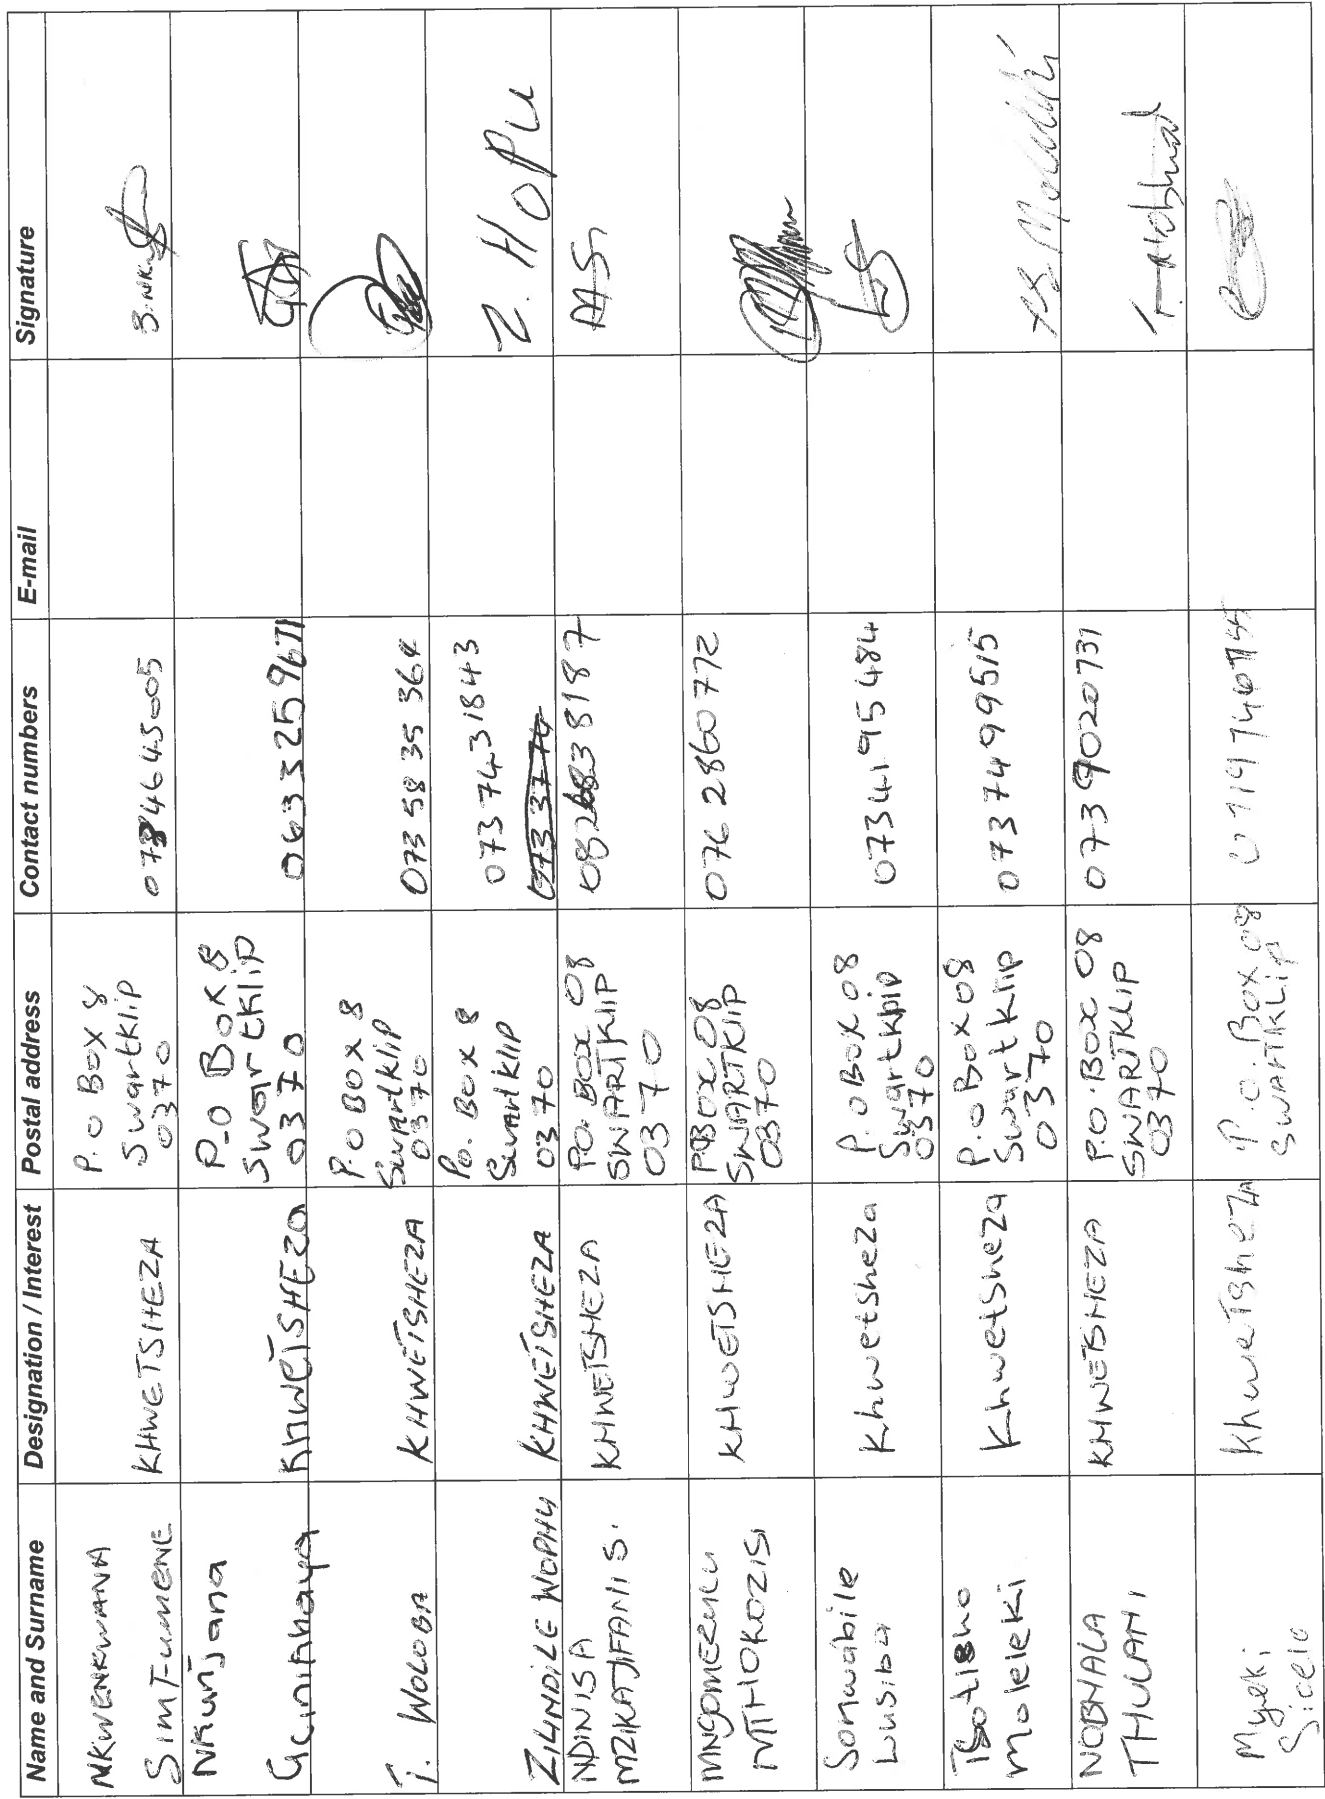 Name and Surname Designation / Interest Postal address Contact numbers E-mail Signature
NKWENKWANA
KHWETSHEZA
P.O Box 8
Swartklip
0370
Nkunjana
Gcinikhaya
KhWETSHEZa
P.O Box 8
Swartklip
0370
0633259671
T. WOLOBA
KHWETSHEZA
P.O BOX 8
Swartklip
0370
0735835364
ZILANDILE WOPHU
KHWETSHEZA
P.O. Box 8
Swartklip
0370
0737431843
Z. HOPU
NDINISA
MZIKAYIFANI S.
KHWETSHEZA
P.O. BOX 08
SWARTKLIP
0370
MNGOMEZULU
MTHOKOZISI
KHWETSHEZA
P.O BOX 08
SWARTKLIP
0370
0762860772
Sonwabile
Lusiba
Khwetsheza
P.O BOX 08
Swartklip
0370
0734195484
Tsotisho
Moleleki
Khwetsheza
P.O BOX 08
Swartklip
0370
0737499515
NOBHALA
THULANI
KHWETSHEZA
P.O. BOX 08
SWARTKLIP
0370
0739020731
Myeki
Sicelo
KhweTsheZA
P.O. Box 08
SWARTKLIP